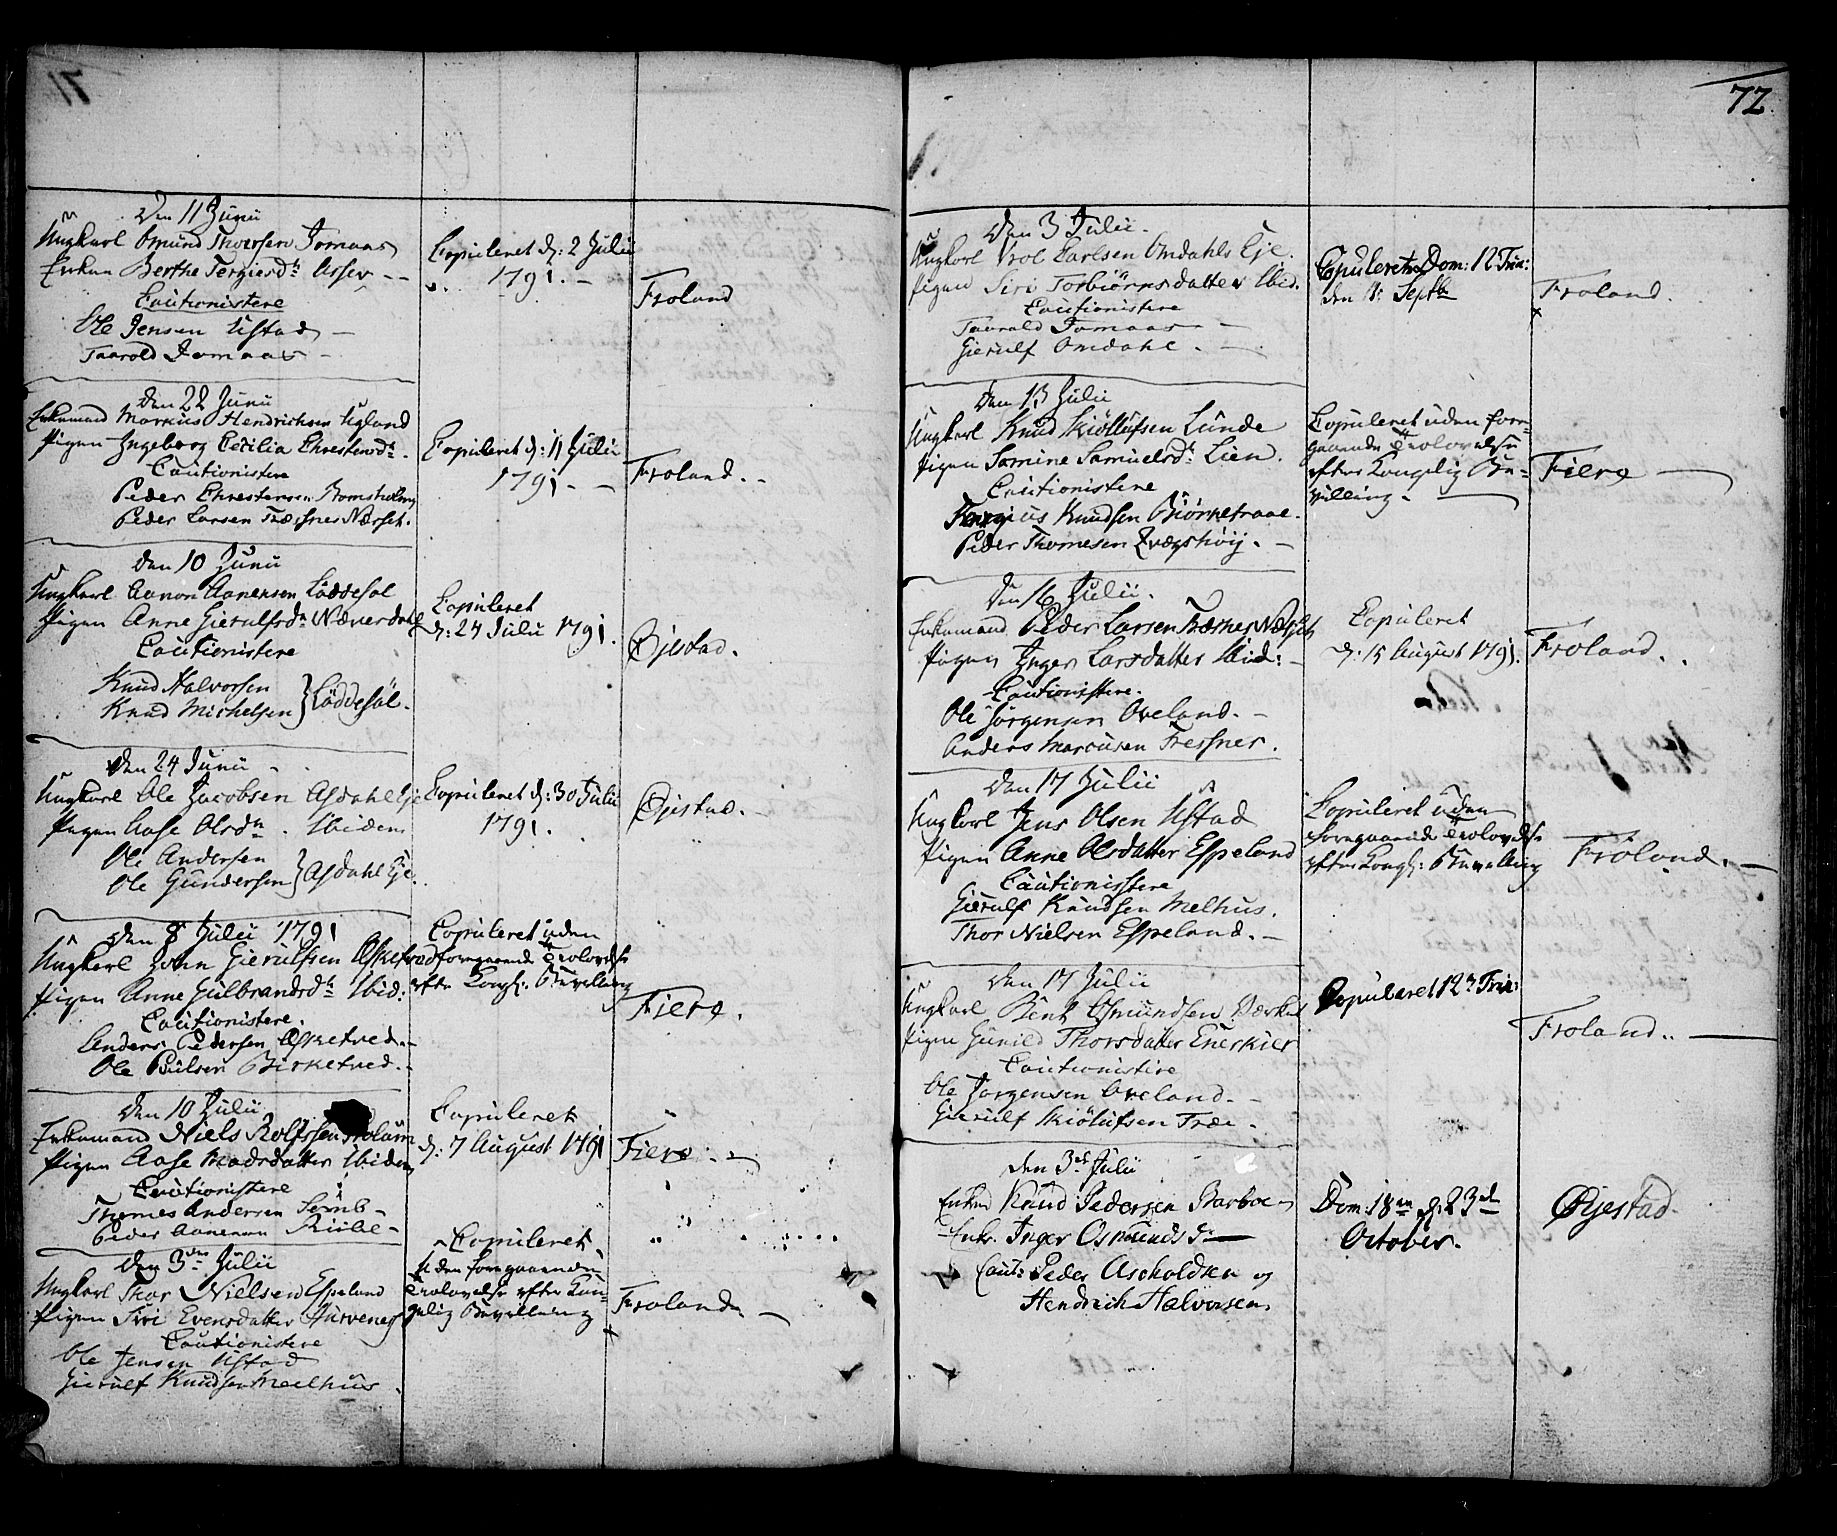 71
Den 11 Junii
Ungkarl Omund Thorsen Jomaas
Enken Berthe Tergiersdr Osser
Cautionistere
Ole Jensen Ustad
Taarold Jomaas
Copuleret d: 2 Julii
1791.
Froland
Den 22 Junii
Enkemand Marcus Hendrichsen Ugland
Pigen Ingeborg Cecilia Chrestensdr.
Cautionistere
Peder Chrestensen Bomsholm
Peder Larsen Træfsnes Nærset.
Copuleret d: 11 Julii
1791.
Froland.
Den 10 Junii
Ungkarl Aanon Aanensen Löddesöl
Pigen Anne Gierulfsdr Næverdahl
Cautionistere
Knud Halvorsen
Knud Michelsen } Löddesöl.
Copuleret
d: 24 Julii 1791.
Öjestad.
Den 24 Junii
Ungkarl Ole Jacobsen Asdahl Eje
Pigen Aase Olsdr. Ibidem
Ole Andersen
Ole Gundersen } Asdahl Eje.
Copuleret d: 30 Julii
1791.
Öjestad.
Den 8 Julii 1791
Ungkarl John Gierulfsen Osketved
Pigen Anne Gulbrandsdr Ibid:
Cautionistere.
Anders Pedersen Osketved.
Ole Poulsen Birketved.
Copuleret uden
foregaaende Trolovelse
efter Kongl: Bevilling
Fiere.
Den 10 Julii
Enkemand Niels Rolfssen
Pigen Aase Madsdatter Ibidem
Cautionistere
Thomes Andersen
Peder Aanensen
Copuleret
d: 7 August 1791
Fiere.
Den 3die Julii
Ungkarl Thor Nielsen Espeland
Pigen Siri Evensdatter Hurvenes
Cautionistere
Ole Jensen Ustad
Gierulf Knudsen Meelhus.
Copuleret
Uden foregaaende
Trolovelse efter Kon-
gelig Bevilling
Froland
72
Den 3 Julii.
Ungkarl Troe Carlsen Omdahls Eje.
Pigen Siri Torbiörnsdatter Ibid.
Cautionistere
Taarold Jomaas
Gierulf Omdahl.
Copuleret Dom: 12 Trin:
den Septb
Froland.
Den 13 Julii
Ungkarl Knud Skiöllufsen Lunde
Pigen Samine Samuelsdr Lien.
Cautionistere
Tergius Knudsen Biörketraae.
Peder Thomesen Qvægshöij.
Copuleret uden fore-
gaaende Trolovelse
efter Kongelig Be-
villing.
Fiere
Den 16 Julii.
Enkemand Peder Larsen Træsnes Nærset
Pigen Inger Larsdatter Ibid:
Cautionistere.
Ole Jörgensen Oveland.
Anders Marcusen Tresner.
Copuleret
d: 15 August 1791.
Froland.
Den 17 Julii
Ungkarl Jens Olsen Ustad
Pigen Anne Olsdatter Espeland
Cautionistere
Gierulf Knudsen Melhus.
Thor Nielsen Espeland.
Copuleret uden
foregaaende Trolovelse
efter Kongl: Bevilling
Froland.
Den 17 Julii
Ungkarl Bent Osmundsen
Pigen Gunild Thorsdatter Enerkier
Cautionistere
Ole Jörgensen Oveland.
Gierulf Skiölufsen Træe.
Copuleret 12 Trin:
Froland.
Den 3de Julii
Enkmd Knud Pedersen Barboe
Enke. Inger Osmunds d:
Caut: Peder Ascholdsen og
Hendrich Halvorsen.
Dom. 18 d. 23de
October.
Øjestad